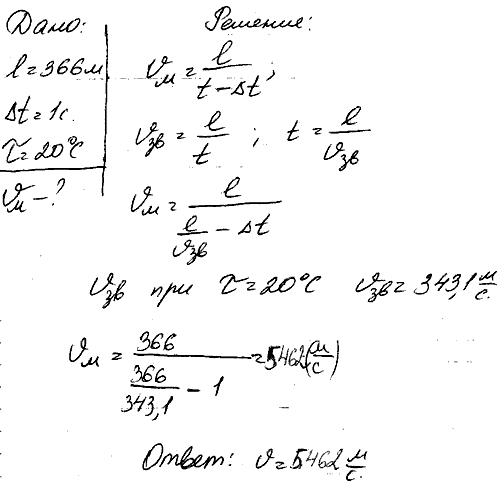 Дано:
l = 366 м
Δt = 1 с.
τ = 20°C
υм - ?
Решение:
υм = l / (t - Δt);
υзв = l / t ; t = l / υзв
υм = l / (l / υзв - Δt)
υзв при τ = 20°C υзв = 343,1 м/с.
υм = 366 / (366 / 343,1 - 1) = 5462 (м/с)
Ответ: υ = 5462 м/с.